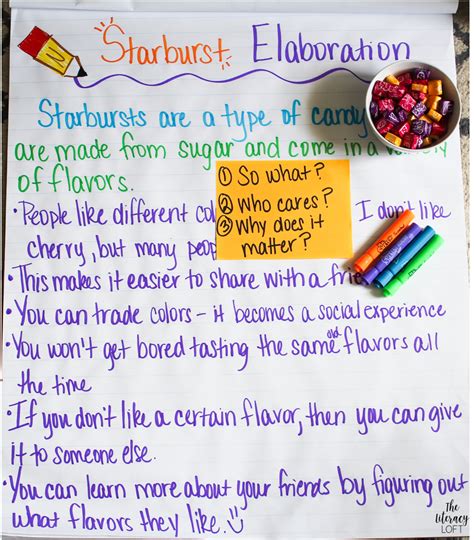 Starburst Elaboration
Starbursts are a type of candy
are made from sugar and come in a
of flavors.
① So what?
② Who cares?
③ Why does it
matter?
• People like different I don't like
cherry, but many
• This makes it easier to share with a
• You can trade colors - it becomes a social experience
• You won't get bored tasting the same old flavors all
the time
• If you don't like a certain flavor, then you can give
it to someone else.
• You can learn more about your friends by figuring out
what flavors they like.
The
Literacy
LOFT